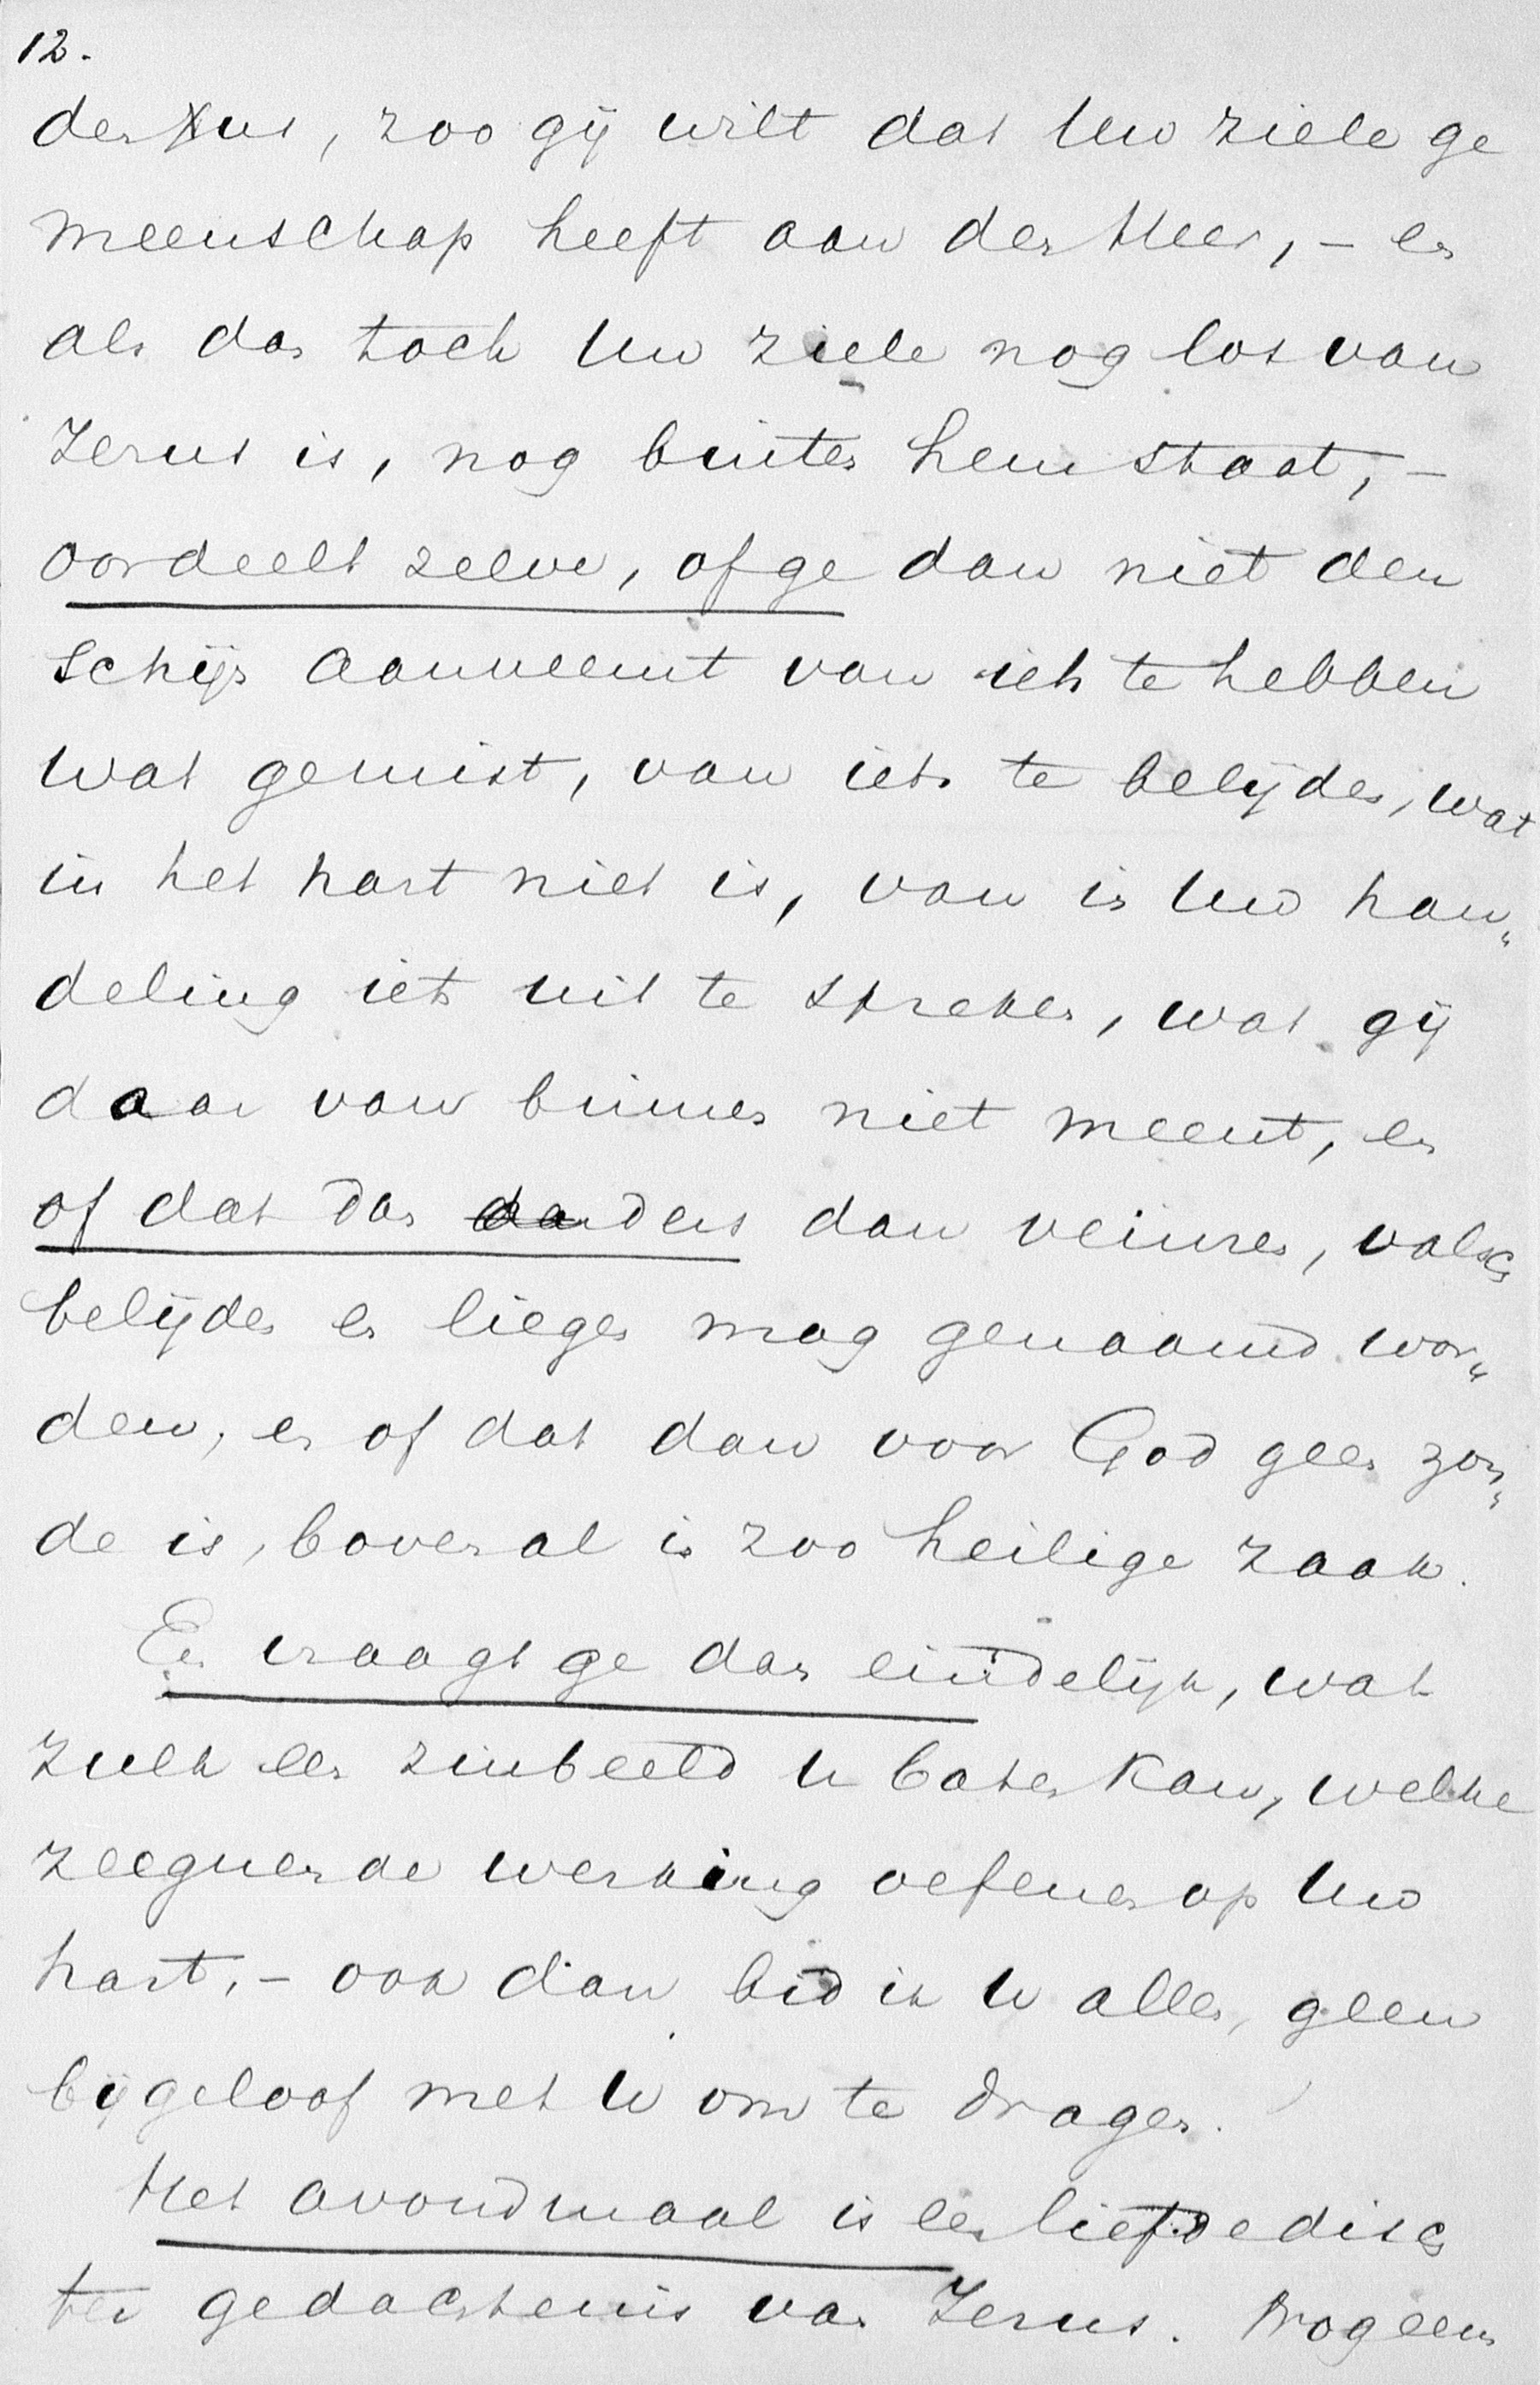 12.
den Xus, zoo gij wilt dat Uw ziele ge
meenschap heeft aan den Heer, – en
als dan toch Uw ziele nog los van
Jezus is, nog buiten hem staat, –
oordeelt zelve, of ge dan niet den
schijn aanneemt van iets te hebben
wat ge mist, van iets te belijden, wat
in het hart niet is, van in Uw han„
deling iets uit te spreken, wat gij
daar van binnen niet meent, en
of dat dan anders dan veinzen, valsch
belijden en liegen mag genaamd wor„
den, en of dat dan voor God geen zon„
de is, bovenal in zoo heilige zaak.
En vraagt ge dan eindelijk, wat
zulk een zinbeeld U baten kan, welke
zeegnende werking oefenen op Uw
hart, – ook dan bid ik U allen, geen
bijgeloof met U om te dragen.
Het avondmaal is een liefdedisch
ter gedachtenis van Jezus. Nog eens